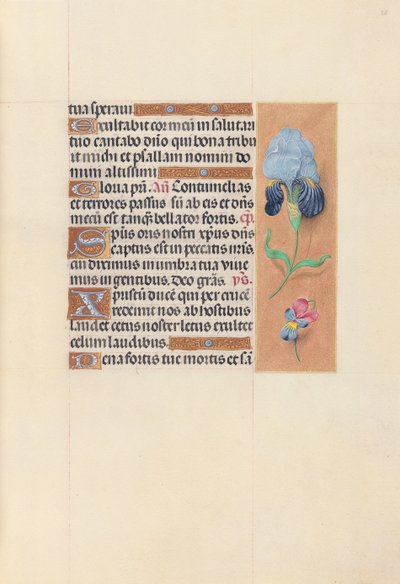 tua speraui
Exultabit cor meũ in salutari
tuo cantabo dño qui bona tribu
it michi et psallam nomini do
mini altissimi
Gloria pñ. añ Contumelias
et terrores passus sũ ab eis et dñs
mecũ est tanq̃ bellator fortis. cp̃.
Spũs oris nostri xp̃us dñs
captus est in peccatis nr̃is.
cui diximus in umbra tua viue
mus in gentibus, Deo grãs. ps̃.
Xp̃ustũ ducẽ qui per crucẽ
redemit nos ab hostibus
laudet cetus noster letus exultet
celum laudibus.
Pena fortis tue mortis et sã